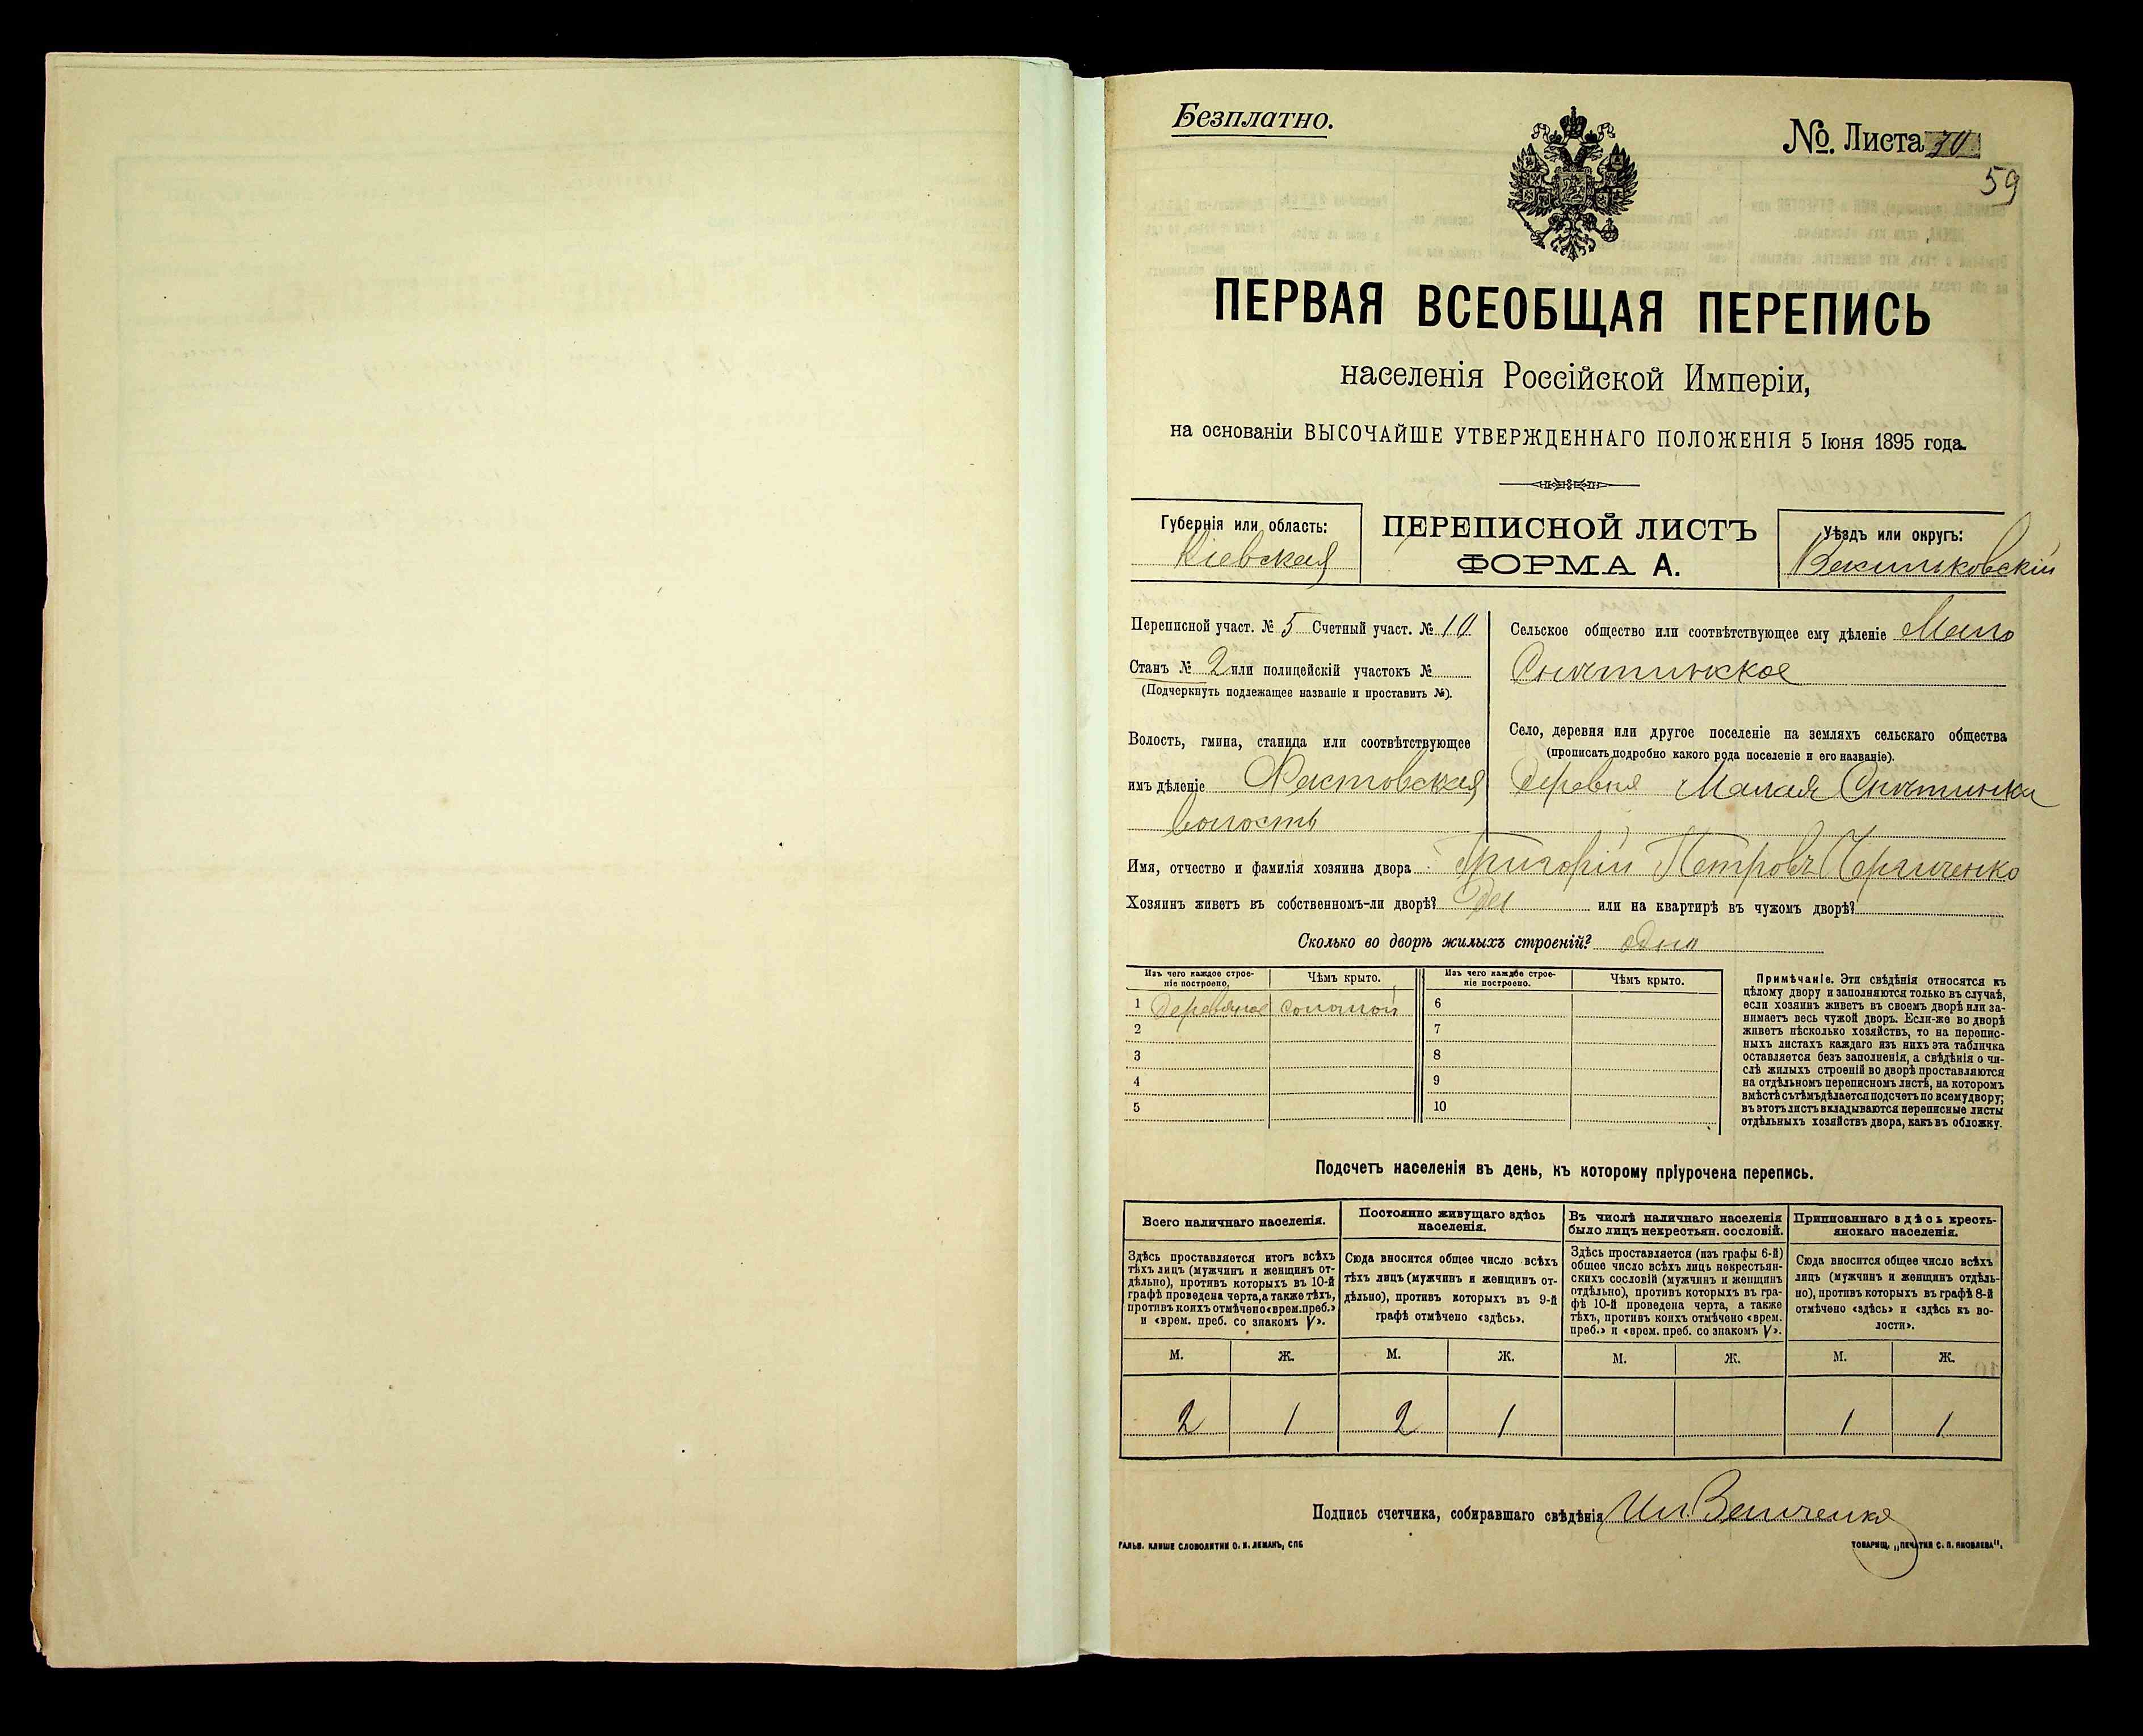 Безплатно.
№. Листа 30
59
ПЕРВАЯ ВСЕОБЩАЯ ПЕРЕПИСЬ
населенія Россійской Имперіи,
на основаніи ВЫСОЧАЙШЕ УТВЕРЖДЕННАГО ПОЛОЖЕНІЯ 5 Іюня 1895 года.
Губернія или область:
Кіевская
ПЕРЕПИСНОЙ ЛИСТЪ
ФОРМА А.
Уѣздъ или округъ:
Васильковскій
Переписной участ. № 5 Счетный участ. № 10
Станъ № 2 или полицейскій участокъ №
(Подчеркнуть подлежащее названіе и проставить №).
Волость, гмина, станица или соотвѣтствующее
имъ дѣленіе Фастовская
волость
Сельское общество или соотвѣтствующее ему дѣленіе Мало
Снитинское
Село, деревня или другое поселеніе на земляхъ сельскаго общества
(прописать подробно какого рода поселеніе и его названіе).
Деревня Малая Снитинка
Имя, отчество и фамилія хозяина двора Григорій Петровъ
Хозяинъ живетъ въ собственномъ-ли дворѣ? Да или на квартирѣ въ чужомъ дворѣ?
Сколько во дворѣ жилыхъ строеній? одно
Изъ чего каждое строе-
ніе построено.
Чѣмъ крыто.
Изъ чего каждое строе-
ніе построено.
Чѣмъ крыто.
1 Деревяное соломой 6
2 7
3 8
4 9
5 10
Примѣчаніе. Эти свѣдѣнія относятся къ
цѣлому двору и заполняются только въ случаѣ,
если хозяинъ живетъ въ своемъ дворѣ или за-
нимаетъ весь чужой дворъ. Если-же во дворѣ
живетъ нѣсколько хозяйствъ, то на перепис-
ныхъ листахъ каждаго изъ нихъ эта табличка
оставляется безъ заполненія, а свѣдѣнія о чи-
слѣ жилыхъ строеній во дворѣ проставляются
на отдѣльномъ переписномъ листѣ, на которомъ
вмѣстѣ съ тѣмъ дѣлается подсчетъ по всему двору;
въ этотъ листъ вкладываются переписные листы
отдѣльныхъ хозяйствъ двора, какъ въ обложку.
Подсчетъ населенія въ день, къ которому пріурочена перепись.
Всего наличнаго населенія.
Здѣсь проставляется итогъ всѣхъ
тѣхъ лицъ (мужчинъ и женщинъ от-
дѣльно), противъ которыхъ въ 10-й
графѣ проведена черта, а также тѣхъ,
противъ коихъ отмѣчено «врем. преб.»
и «врем. преб. со знакомъ V».
Постоянно живущаго здѣсь
населенія.
Сюда вносится общее число всѣхъ
тѣхъ лицъ (мужчинъ и женщинъ от-
дѣльно), противъ которыхъ въ 9-й
графѣ отмѣчено «здѣсь».
Въ числѣ наличнаго населенія
было лицъ некрестьян. сословій.
Здѣсь проставляется (изъ графы 6-й)
общее число всѣхъ лицъ некрестьян-
скихъ сословій (мужчинъ и женщинъ
отдѣльно), противъ которыхъ въ гра-
фѣ 10-й проведена черта, а также
тѣхъ, противъ коихъ отмѣчено «врем.
преб.» и «врем. преб. со знакомъ V».
Приписаннаго здѣсь кресть-
янскаго населенія.
Сюда вносится общее число всѣхъ
лицъ (мужчинъ и женщинъ отдѣль-
но), противъ которыхъ въ графѣ 8-й
отмѣчено «здѣсь» и «здѣсь къ во-
лости».
М. Ж. М. Ж. М. Ж. М. Ж.
2 1 2 1 1 1
Подпись счетчика, собиравшаго свѣдѣнія
ГАЛЬВ. КЛИШЕ СЛОВОЛИТНИ О. И. ЛЕМАНЪ, СПБ
ТОВАРИЩ. „ПЕЧАТНЯ С. П. ЯКОВЛЕВА".